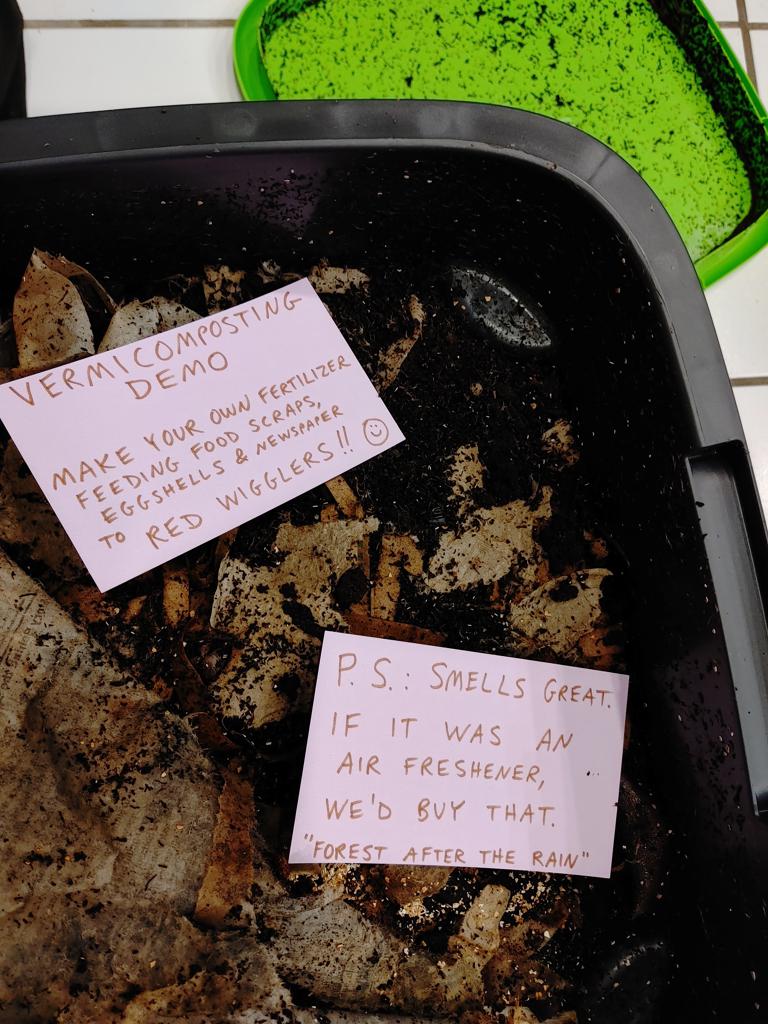 VERMICOMPOSTING
DEMO
MAKE YOUR OWN FERTILIZER
FEEDING FOOD SCRAPS,
EGGSHELLS & NEWSPAPER
TO RED WIGGLERS!!
P.S.: SMELLS GREAT.
IF IT WAS AN
AIR FRESHENER,
WE'D BUY THAT.
"FOREST AFTER THE RAIN"